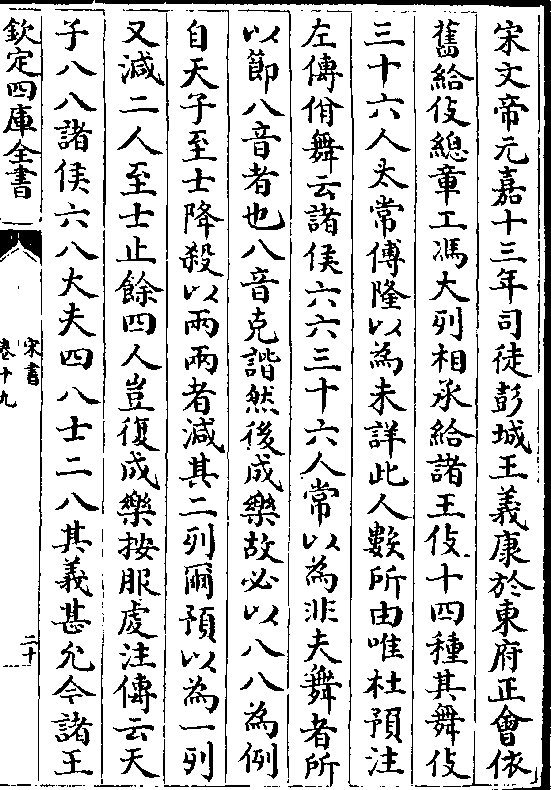 宋文帝元嘉十三年司徒彭城王義康於東府正會依
舊給伎總章工馮大列相承給諸王伎十四種其舞伎
三十六人太常傅隆以為未詳此人數所由唯杜預注
左傳佾舞云諸侯六六三十六人常以為非夫舞者所
以節八音者也八音克諧然後成樂故必以八八為例
自天子至士降殺以兩兩者減其二列爾預以為一列
又減二人至士止餘四人豈復成樂按服虔注傳云天
子八八諸侯六八大夫四八士二八其義甚允今諸王
欽定四庫全書
宋書
卷十九
二十